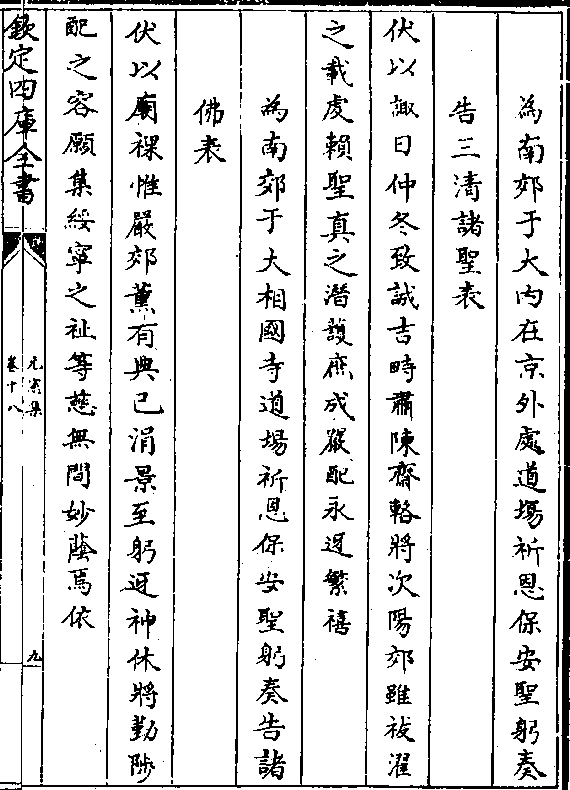 為南郊于大内在京外處道場祈恩保安聖躬奏
告三清諸聖表
伏以諏日仲冬致誠吉時肅陳齋輅將次陽郊雖祓濯
之載虔賴聖真之潛護庶成嚴配永迓繁禧
為南郊于大相國寺道場祈恩保安聖躬奏告諸
佛表
伏以廟祼惟嚴郊薰有典已涓景至躬迓神休將勤陟
配之容願集綏寧之祉等慈無間妙蔭焉依
欽定四庫全書
元憲集
卷十八
九